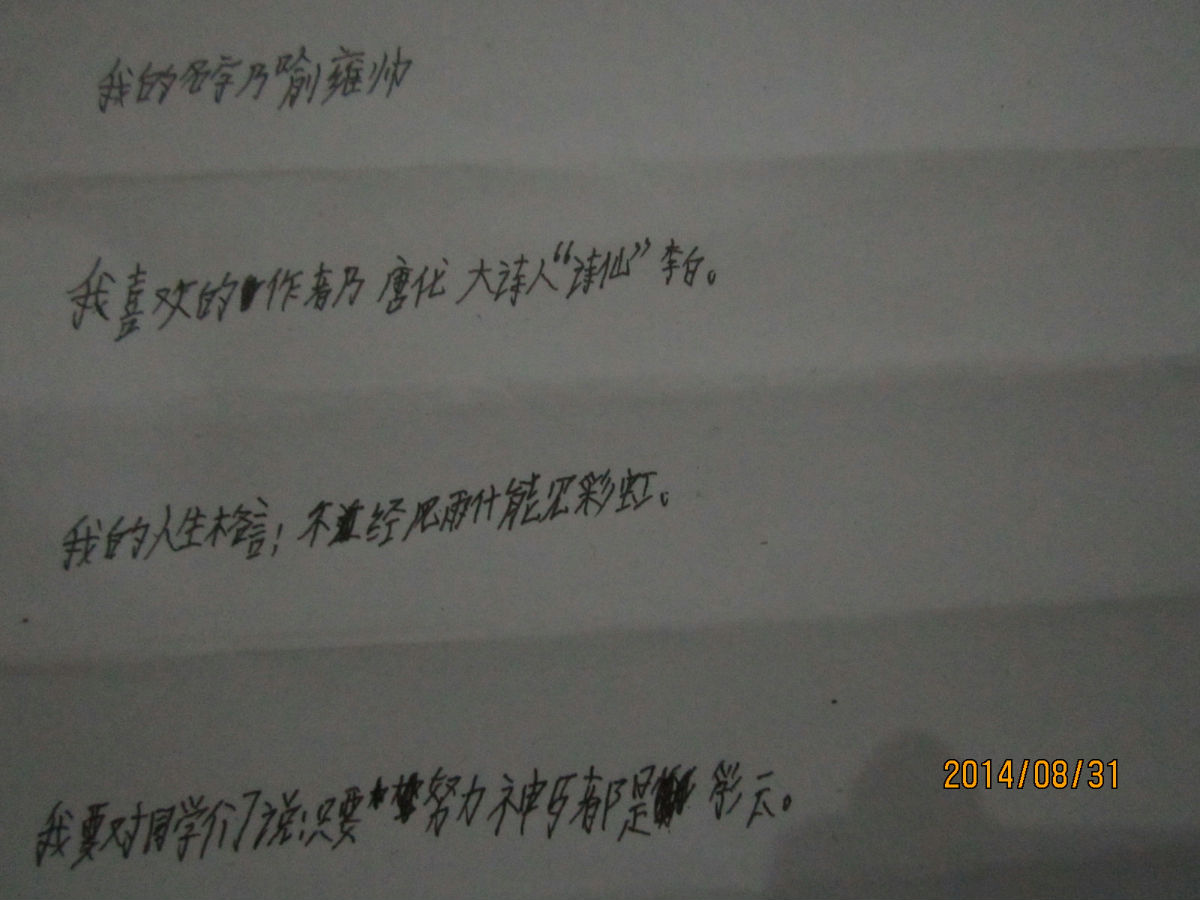 我的名字乃喻雍帅
我喜欢的作者乃唐代大诗人“诗仙”李白。
我的人生格言：不经风雨什能见彩虹。
我要对同学们说：只要努力神马都是彩云。
2014/08/31